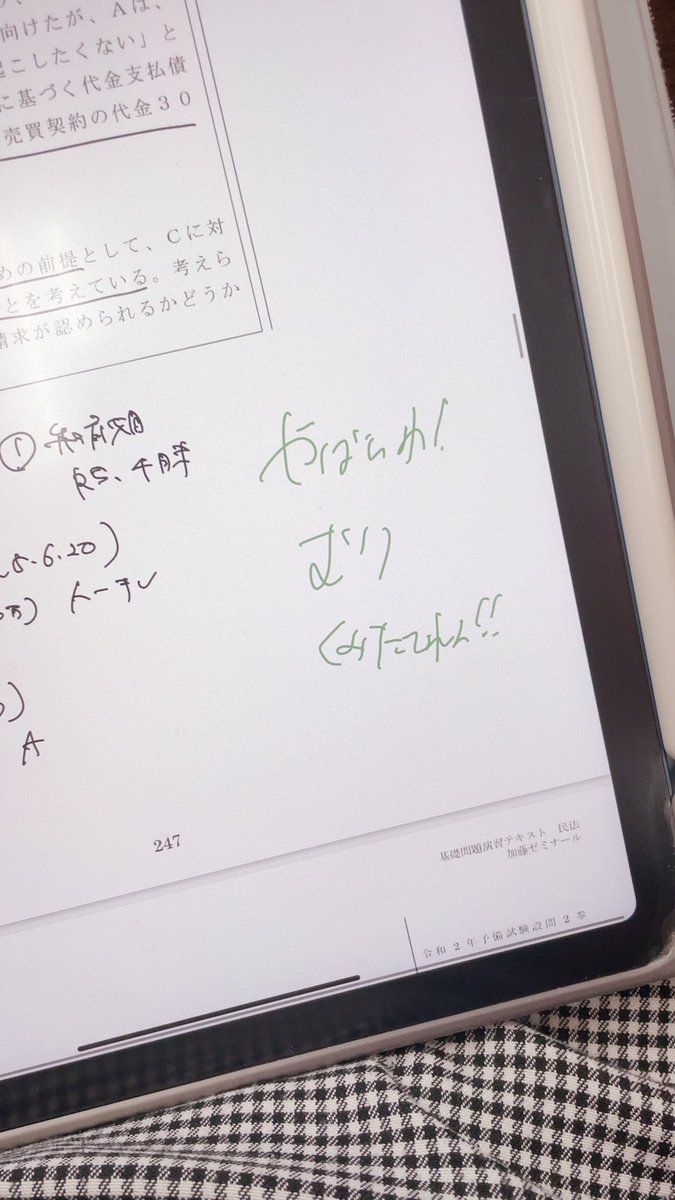 向けたが、Aは、
起こしたくない」と
に基づく代金支払債
売買契約の代金30
めの前提として、Cに対
とを考えている。考えら
請求が認められるかどうか
①
5.6.20)
A
やばいわ!
むり
くみたてれん!!
247
基礎問題演習テキスト 民法
加藤ゼミナール
令和2年予備試験設問2参